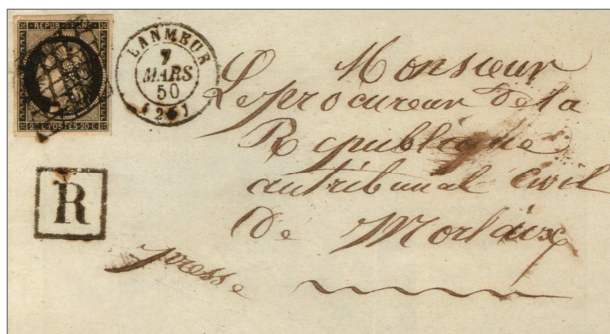 REPUB FRANC
20 C. POSTES 20 C.
LANMEUR
7
MARS
50
(28)
R
Monsieur
Le procureur de la
Republique
au tribunal Civil
De Morlaix
presse